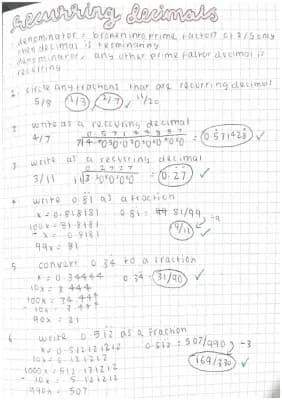 recurring decimals
denominator = broken into prime factors of 2/5 only
then decimal is terminating
denominator = any other prime factor decimal is
recurring
1. circle any fractions that are recurring decimals
5/8 1/3 2/7 11/20
2 write as a recurring decimal
4/7 = 0.571428 ✓
3 write as a recurring decimal
3/11 = 0.27 ✓
4 write 0.81 as a fraction
x = 0.818181 0.81 = 81/99 ÷9
100x = 81.8181 9/11 ✓
- x = 0.8181
99x = 81
5. convert 0.34 to a fraction
x = 0.34444 0.34 = 31/90 ✓
10x = 3.444
100x = 34.444
- 10x = 3.444
90x = 31
6. write 0.512 as a fraction
x = 0.5121212 0.512 = 507/990 ÷3
10x = 5.121212 169/330 ✓
1000x = 512.121212
- 10x = 5.121212
990x = 507